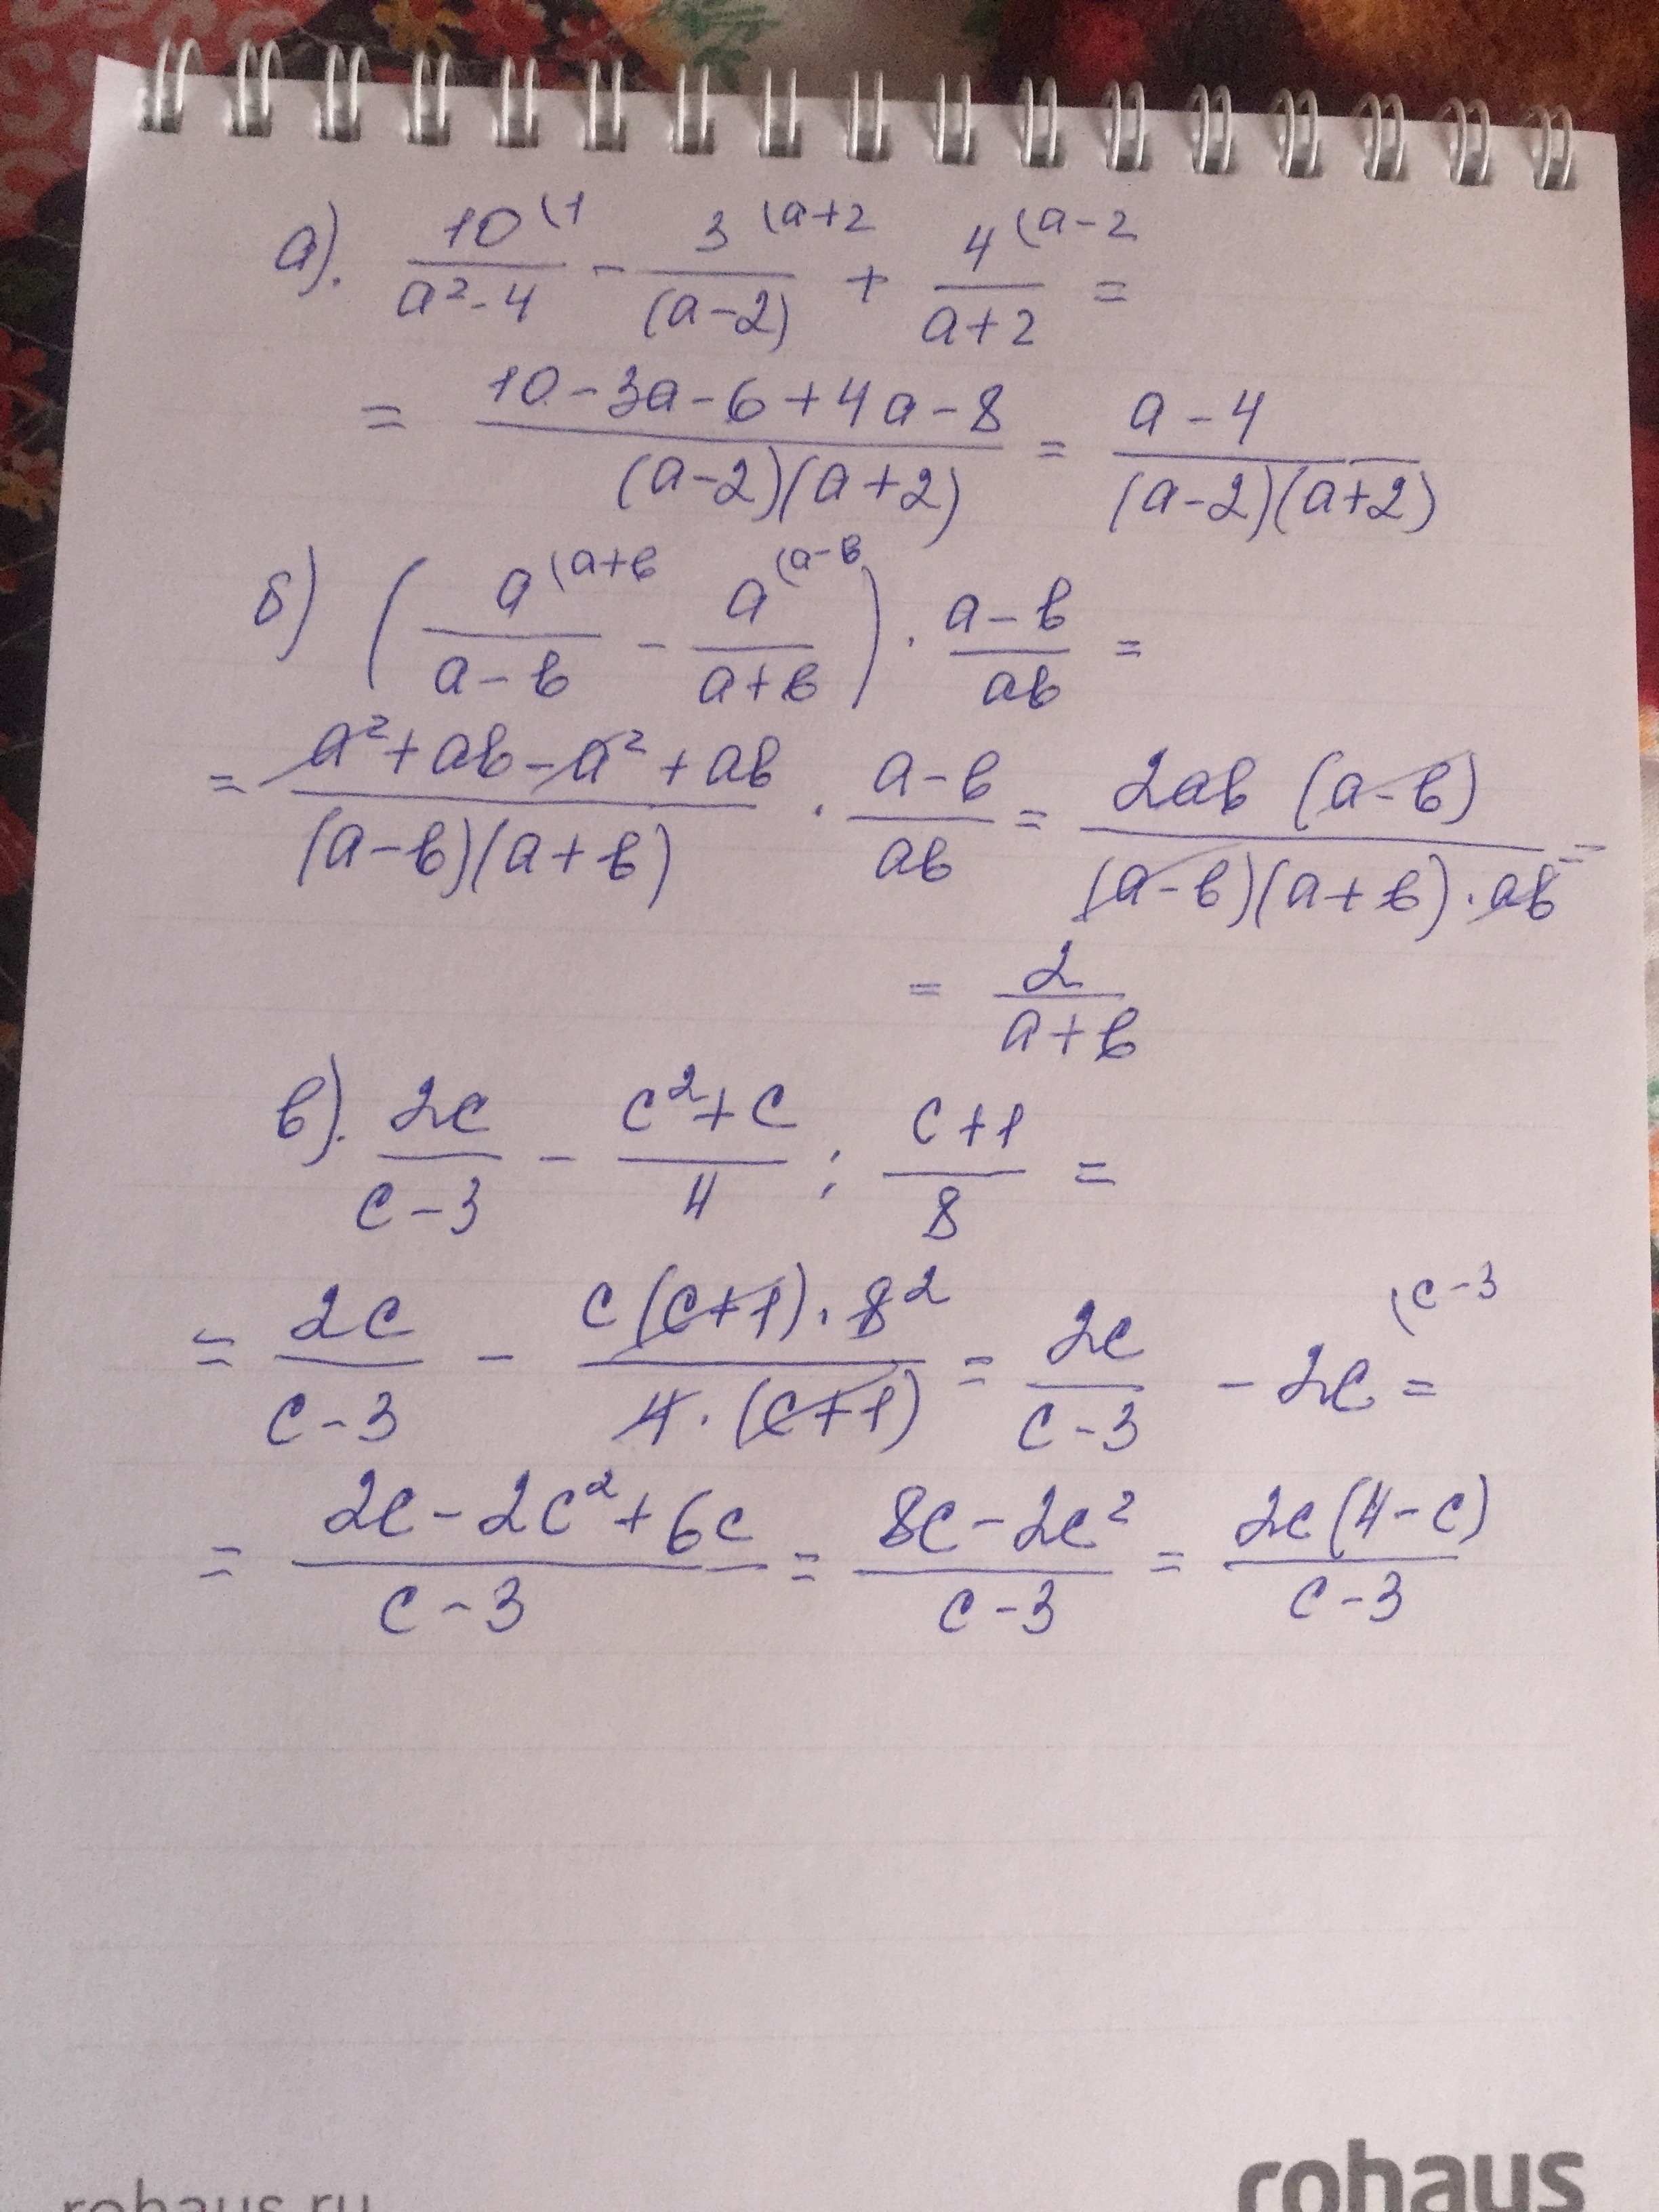 а). 10(1/a²-4 - 3(a+2/(a-2) + 4(a-2/a+2 =
= 10-3a-6+4a-8/(a-2)(a+2) = a-4/(a-2)(a+2)
б) (a(a+в/a-в - a(a-в/a+в) · a-в/aв =
= a²+aв-a²+aв/(a-в)(a+в) · a-в/aв = 2aв(a-в)/(a-в)(a+в)·aв =
= 2/a+в
в). 2c/c-3 - c²+c/4 : c+1/8 =
= 2c/c-3 - c(c+1)·8²/4·(c+1) = 2c/c-3 - 2c(c-3 =
= 2c-2c²+6c/c-3 = 8c-2c²/c-3 = 2c(4-c)/c-3
rohaus.ru rohaus